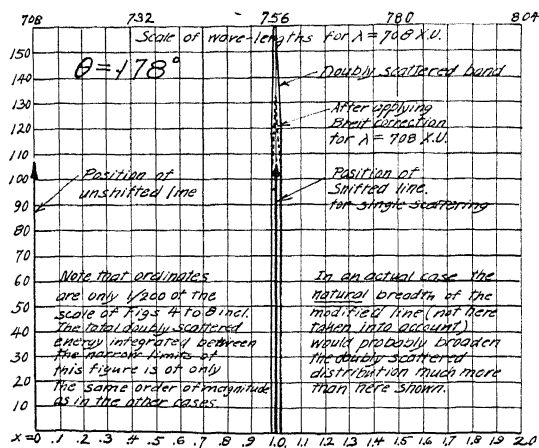 708 732 756 780 804
Scale of wave-lengths for λ = 708 X.U.
θ = 178°
Doubly scattered band
After applying
Breit correction
for λ = 708 X.U.
Position of
unshifted line
Position of
Shifted line
for single scattering
Note that ordinates
are only 1/200 of the
scale of Figs 4 to 8 incl.
The total doubly scattered
energy integrated between
the narrow limits of
this figure is of only
the same order of magnitude
as in the other cases.
In an actual case the
natural breadth of the
modified line (not here
taken into account)
would probably broaden
the doubly scattered
distribution much more
than here shown.
150
140
130
120
110
100
90
80
70
60
50
40
30
20
10
x=0 .1 .2 .3 .4 .5 .6 .7 .8 .9 1.0 1.1 1.2 1.3 1.4 1.5 1.6 1.7 1.8 1.9 2.0